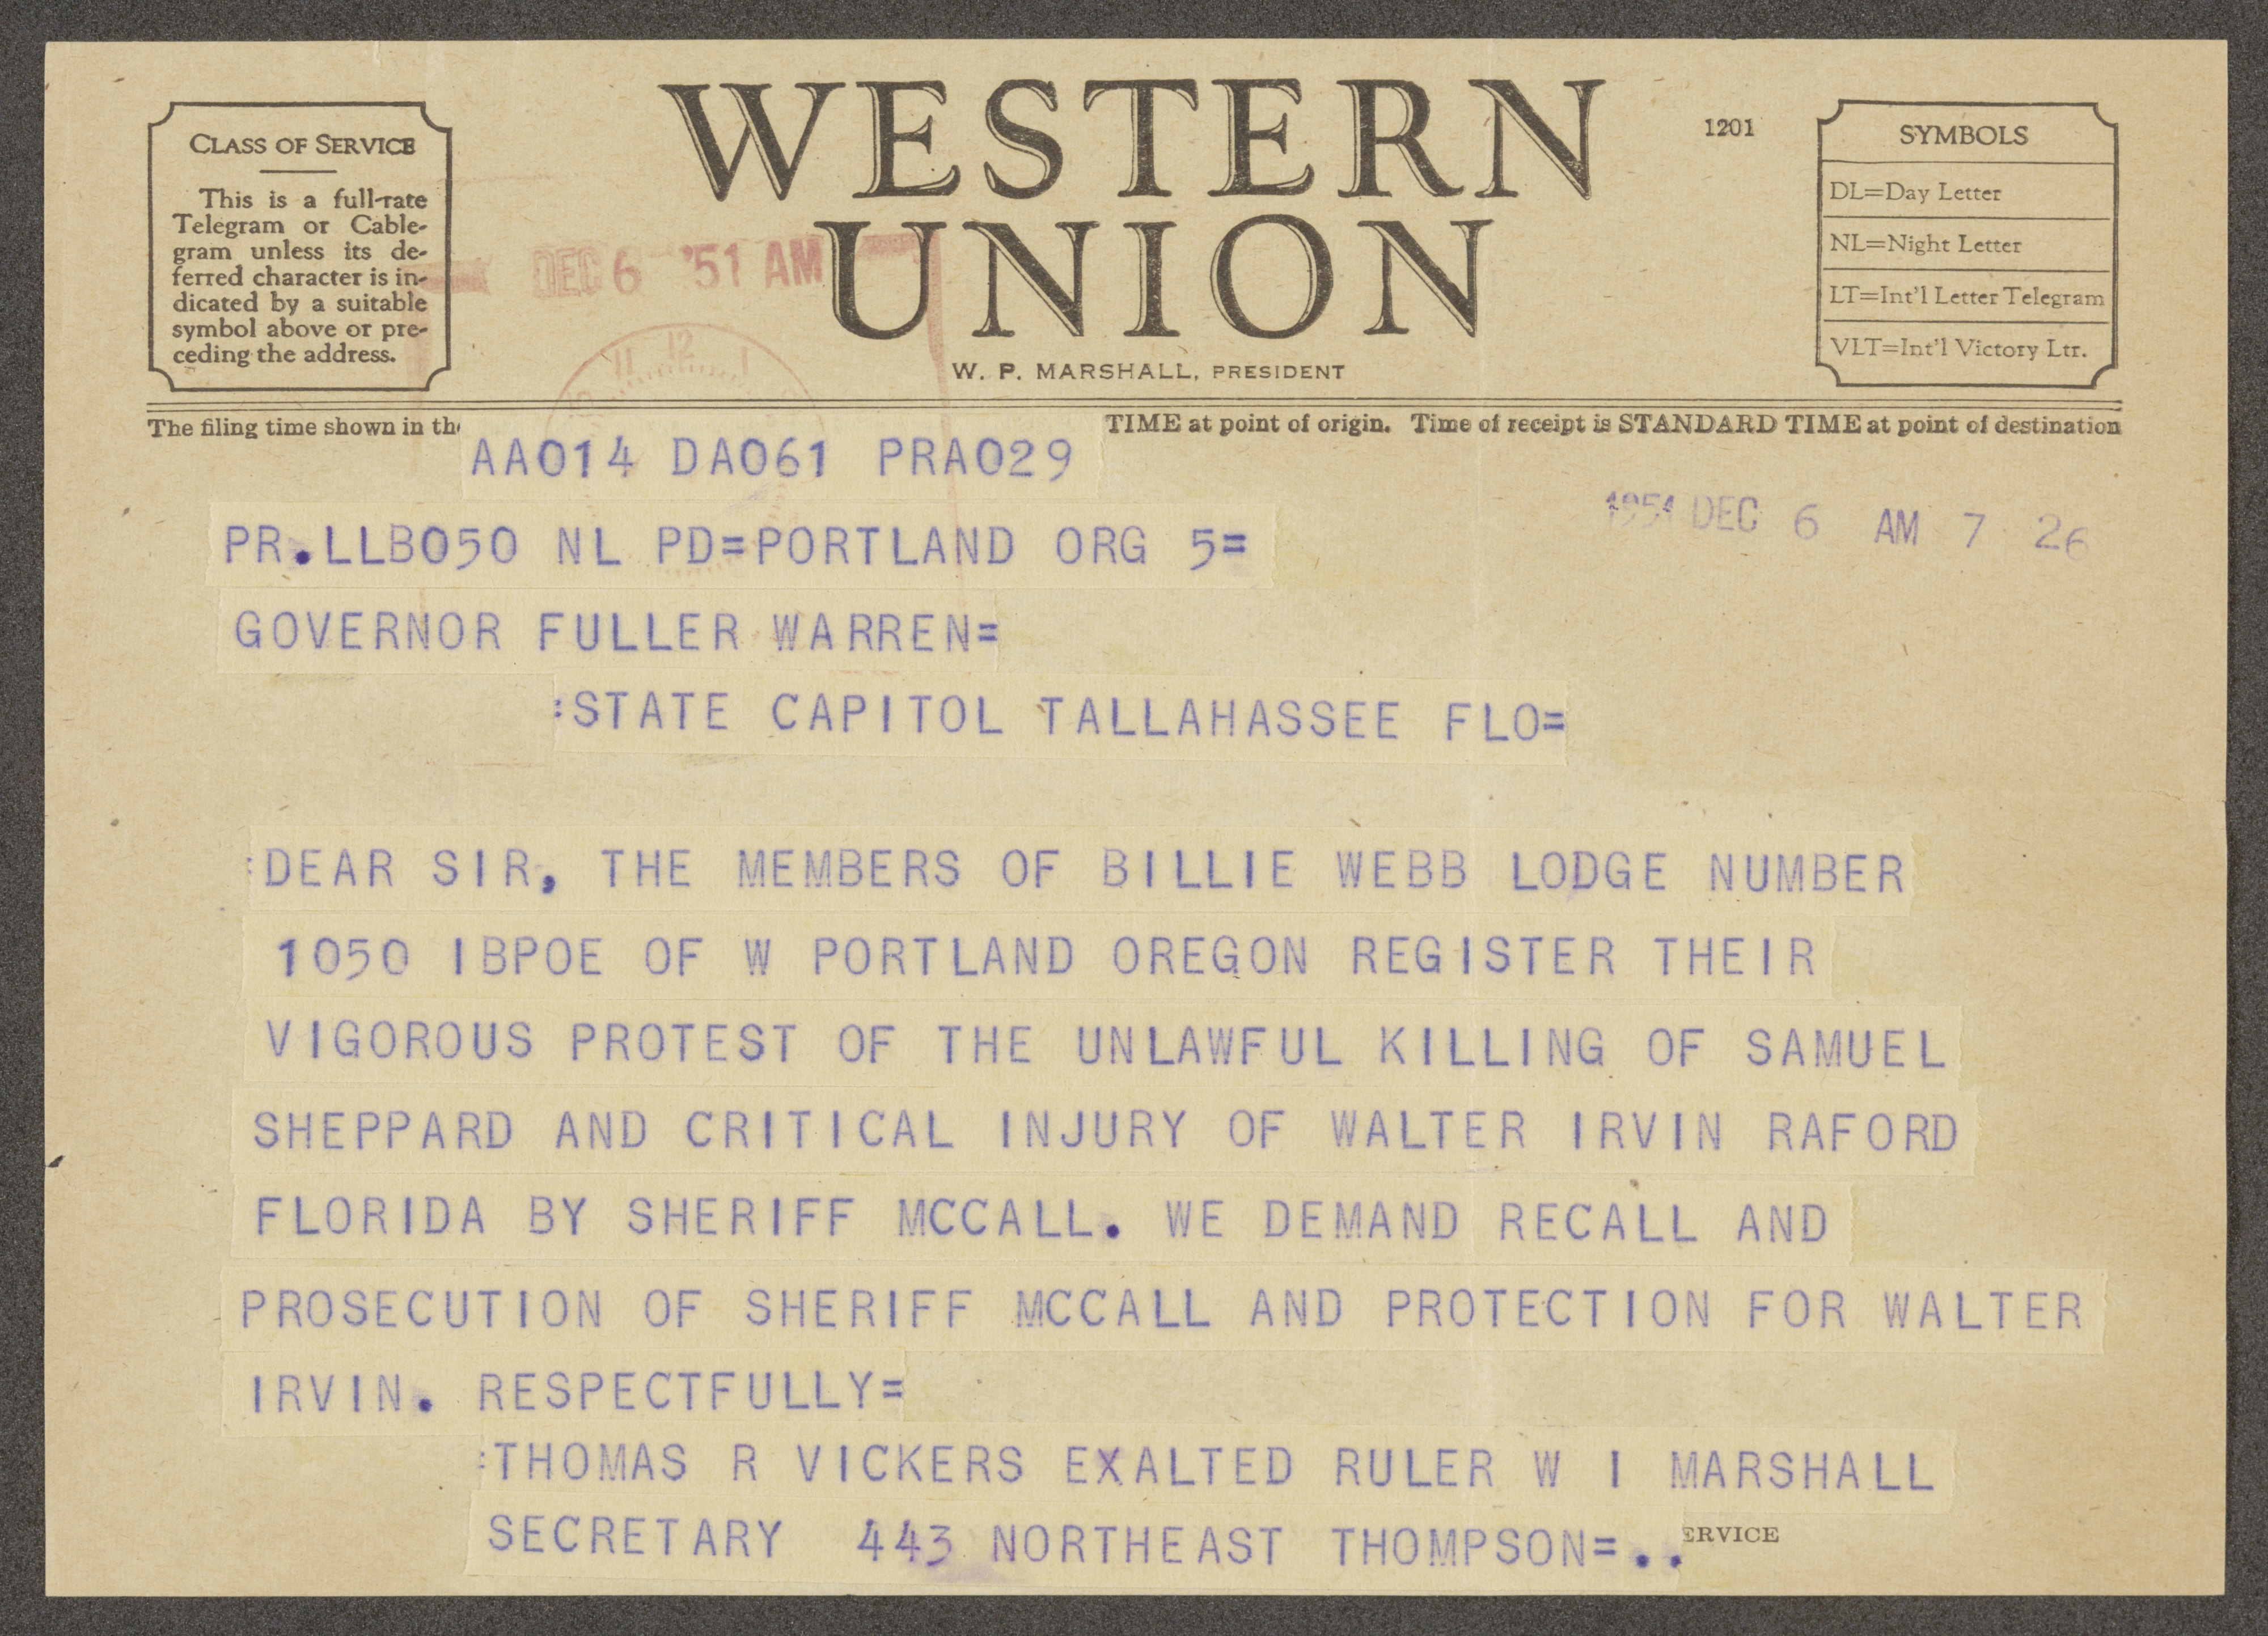 WESTERN
UNION
1201
CLASS OF SERVICE
This is a full-rate
Telegram or Cable-
gram unless its de-
ferred character is in-
dicated by a suitable
symbol above or pre-
ceding the address.
SYMBOLS
DL=Day Letter
NL=Night Letter
LT=Int'l Letter Telegram
VLT=Int'l Victory Ltr.
DEC 6 '51 AM
11 12 1
W. P. MARSHALL, PRESIDENT
The filing time shown in th TIME at point of origin. Time of receipt is STANDARD TIME at point of destination
AA014 DA061 PRA029
1951 DEC 6 AM 7 26
PR.LLB050 NL PD=PORTLAND ORG 5=
GOVERNOR FULLER WARREN=
:STATE CAPITOL TALLAHASSEE FLO=
:DEAR SIR, THE MEMBERS OF BILLIE WEBB LODGE NUMBER
1050 IBPOE OF W PORTLAND OREGON REGISTER THEIR
VIGOROUS PROTEST OF THE UNLAWFUL KILLING OF SAMUEL
SHEPPARD AND CRITICAL INJURY OF WALTER IRVIN RAFORD
FLORIDA BY SHERIFF MCCALL. WE DEMAND RECALL AND
PROSECUTION OF SHERIFF MCCALL AND PROTECTION FOR WALTER
IRVIN. RESPECTFULLY=
:THOMAS R VICKERS EXALTED RULER W I MARSHALL
SECRETARY 443 NORTHEAST THOMPSON=..
ERVICE